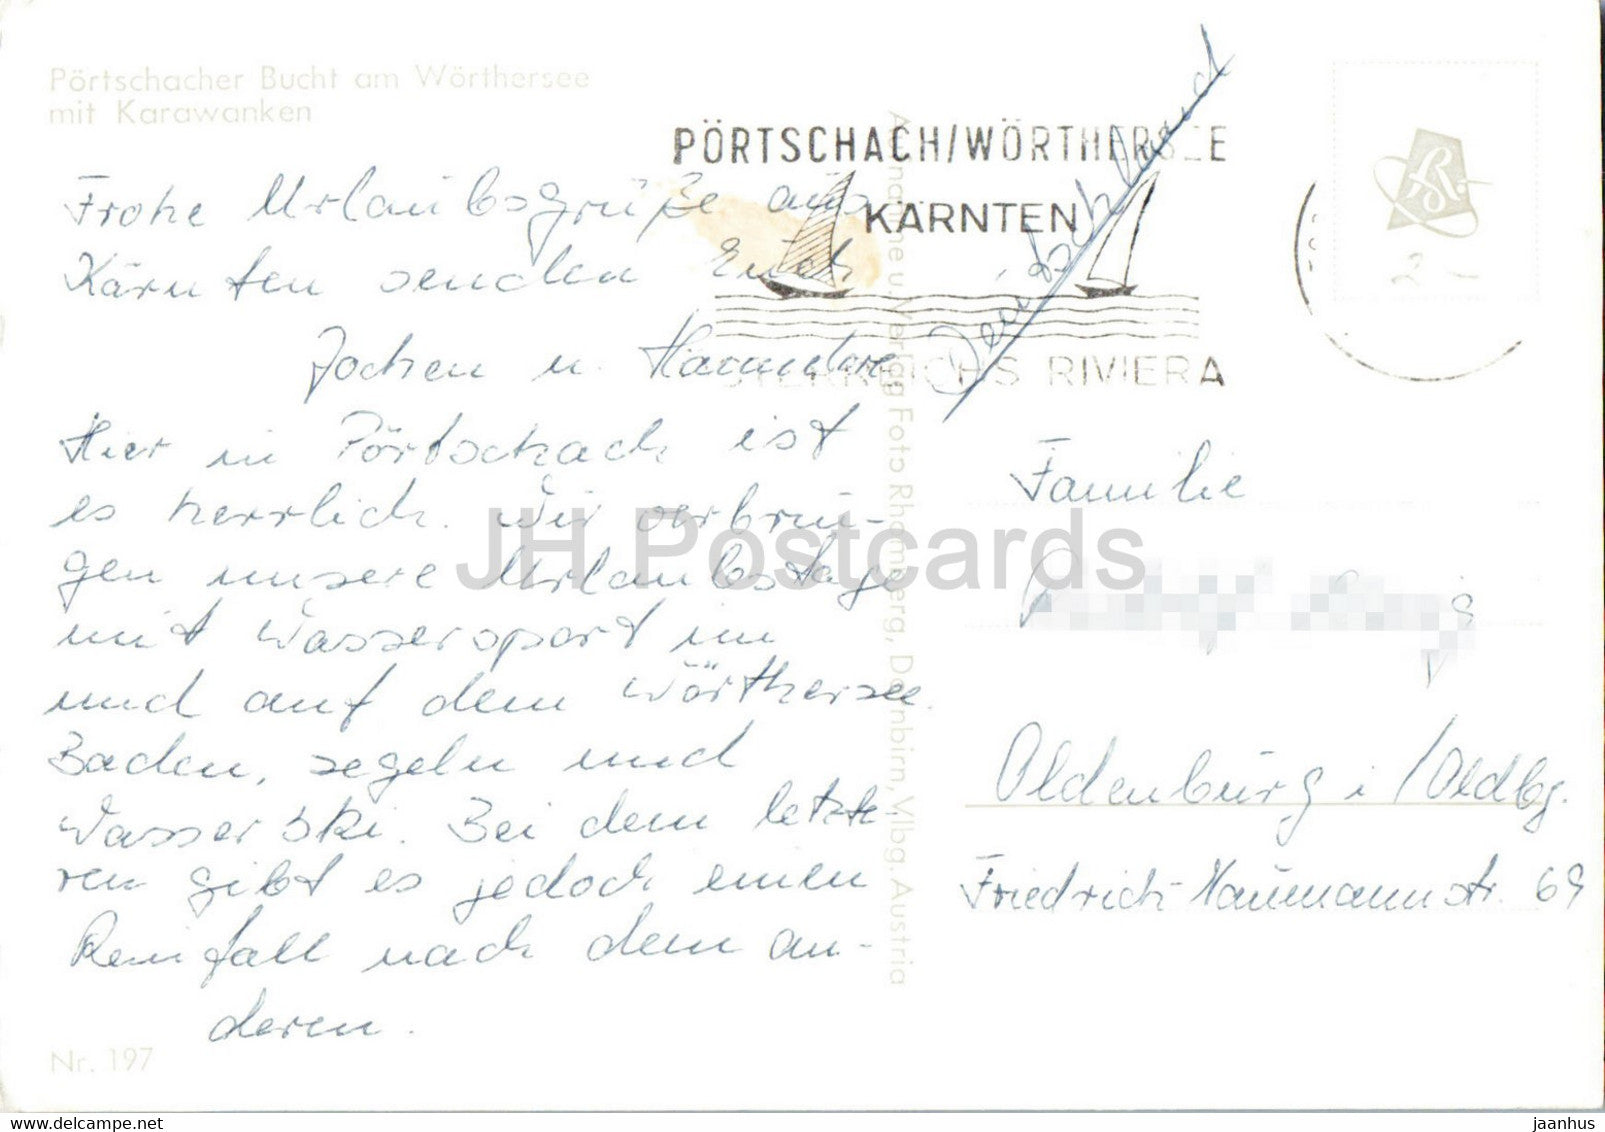 Pörtschacher Bucht am Wörthersee
mit Karawanken
PÖRTSCHACH/WÖRTHERSEE
KÄRNTEN
ÖSTERREICHS RIVIERA
Deutschland
2 -
Frohe Urlaubsgrüße aus
Kärnten senden Euch
Jochen u.
Hier in Pörtschach ist
es herrlich. Wir verbrin-
gen unsere Urlaubstage
mit Wassersport im
und auf dem Wörthersee.
Baden, segeln und
Wasserski. Bei dem letzte-
ren gibt es jedoch einen
Reinfall nach dem an-
deren.
Nr. 197
Aufnahme u. Verlag Foto Rhomberg, Dornbirn, Vlbg. Austria
Familie
Oldenburg i/Oldbg.
Friedrich-Naumannstr. 69
JH Postcards
www.delcampe.net
jaanhus